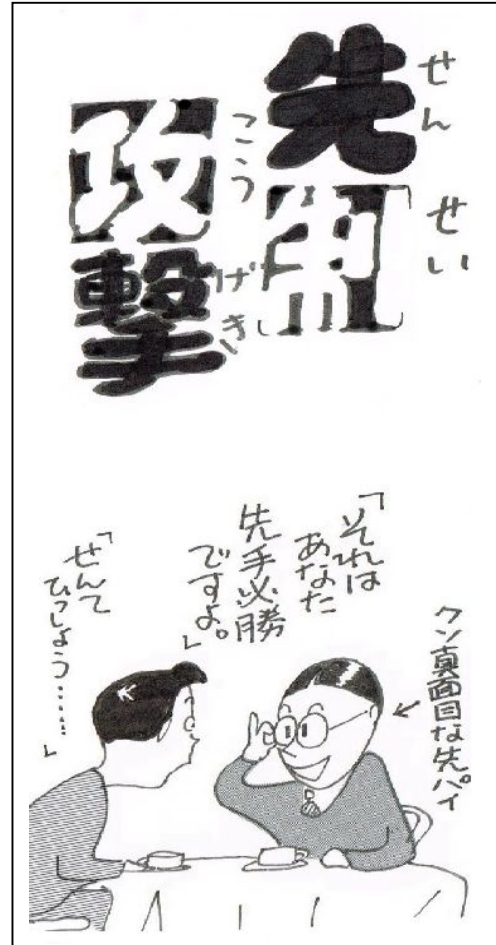 先制
せんせい
攻撃
こうげき
クソ真面目な先パイ
「それは
あなた
先手必勝
ですよ。」
「せんて
ひっしょう……」